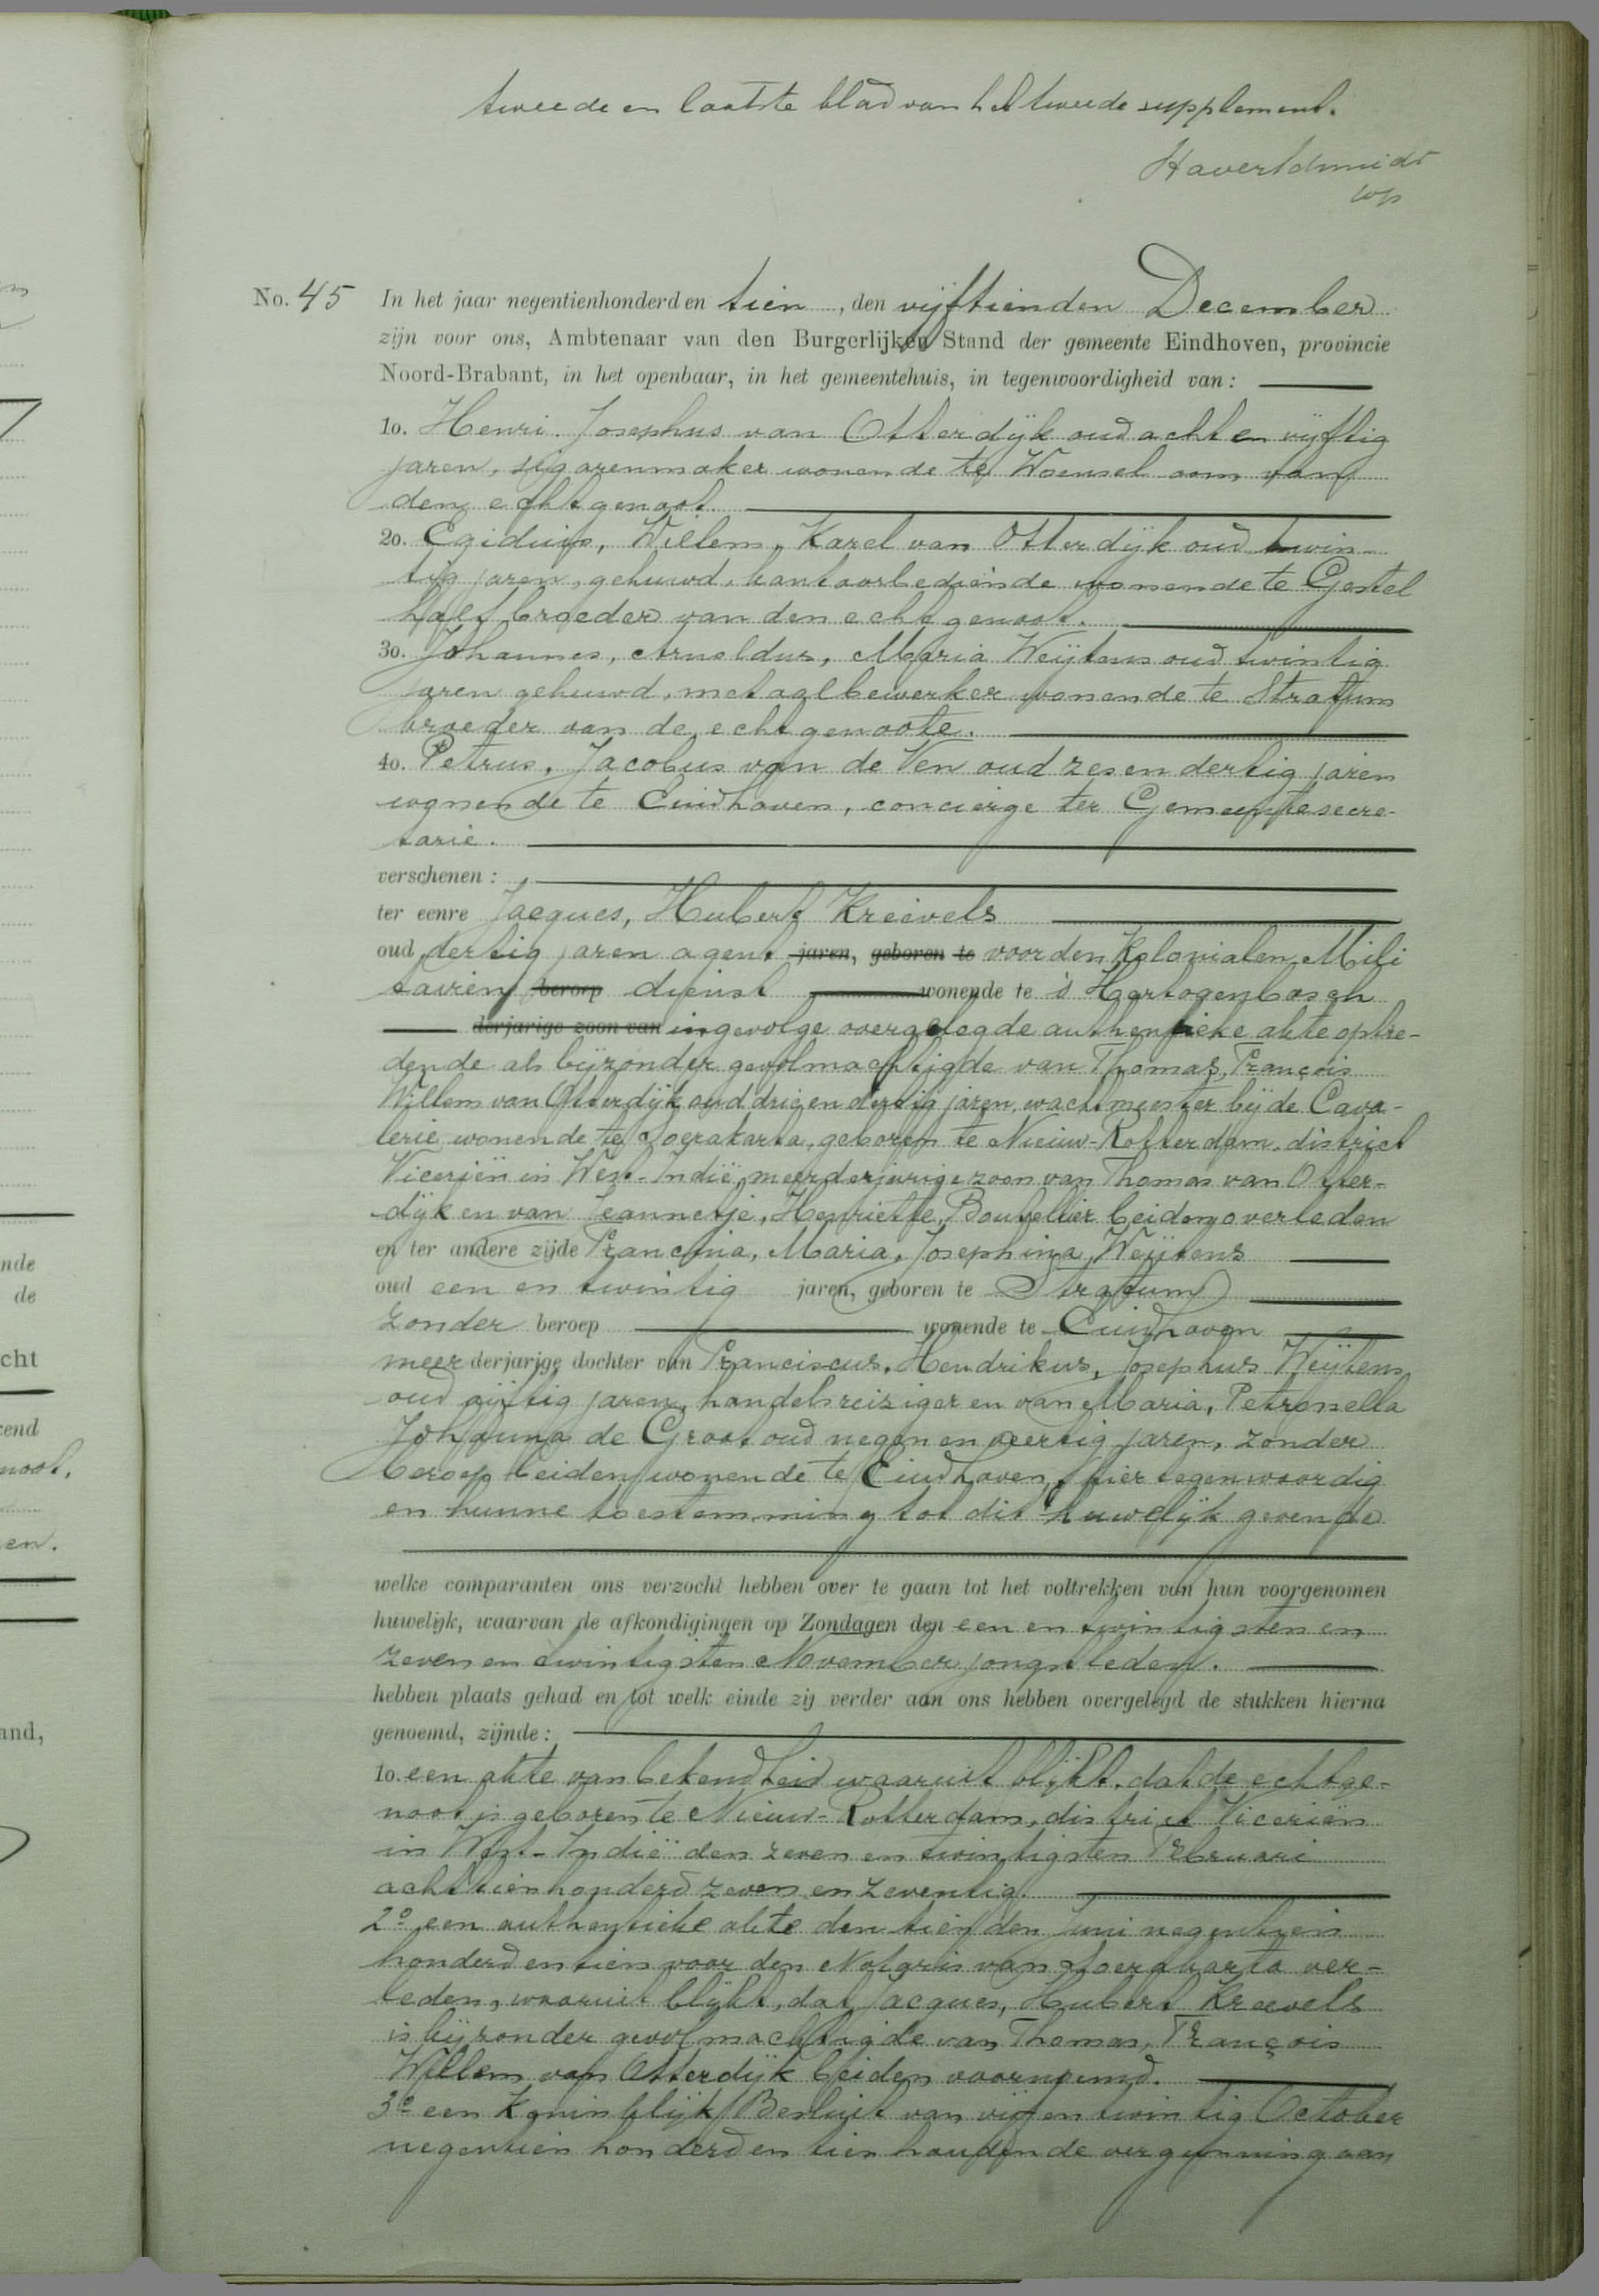 tweede en laatste blad van het tweede supplement.
Haverschmidt
wp
No. 45 In het jaar negentienhonderd en tien, den vijftienden December
zijn voor ons, Ambtenaar van den Burgerlijken Stand der gemeente Eindhoven, provincie
Noord-Brabant, in het openbaar, in het gemeentehuis, in tegenwoordigheid van:
1o. Henri. Josephus van Otterdijk oud acht en vijftig
jaren, sigarenmaker wonende te Woensel oom van
den echtgenoot.
2o. Egidius, Willem, Karel van Otterdijk oud twin-
tig jaren, gehuwd, kantoorbediende wonende te Gestel
half broeder van den echtgenoot.
3o. Johannes, Arnoldus, Maria Weijtens oud twintig
jaren gehuwd, metaalbewerker wonende te Stratum
broeder van de echtgenoote.
4o. Petrus, Jacobus van de Ven oud zes en dertig jaren
wonende te Eindhoven, concierge ter Gemeentesecre-
tarie.
verschenen:
ter eenre Jacques, Hubert Kreevels
oud dertig jaren agent jaren, geboren te voor den Kolonialen Mili
tairen beroep dienst wonende te 's Hertogenbosch
derjarige zoon van ingevolge overgelegde authentieke akte optre-
dende als bijzonder gevolmachtigde van Thomas, François
Willem van Otterdijk oud drie en dertig jaren, wachtmeester bij de Cava-
lerie wonende te Soerakarta, geboren te Nieuw-Rotterdam, district
Niceriën in West-Indië, meerderjarige zoon van Thomas van Otter-
dijk en van Jeannetje, Henriette, Bouvellier beiden overleden
en ter andere zijde Francina, Maria, Josephina, Weijtens
oud een en twintig jaren, geboren te Stratum
zonder beroep wonende te Eindhoven
meerderjarige dochter van Franciscus, Hendrikus, Josephus Weijtens,
oud vijftig jaren, handelsreiziger en van Maria, Petronella
Johanna de Groot oud negen en veertig jaren, zonder
beroep beiden wonende te Eindhoven, hier tegenwoordig
en hunne toestemming tot dit huwelijk gevende
welke comparanten ons verzocht hebben over te gaan tot het voltrekken van hun voorgenomen
huwelijk, waarvan de afkondigingen op Zondagen den een en twintigsten en
zeven en twintigsten November jongstleden.
hebben plaats gehad en tot welk einde zij verder aan ons hebben overgelegd de stukken hierna
genoemd, zijnde:
1o. een akte van bekendheid waaruit blijkt, dat de echtge-
noot is geboren te Nieuw-Rotterdam, district Niceriën
in West-Indië den zeven en twintigsten Februari
achttienhonderd zeven en zeventig.
2o een authentieke akte den tienden Juni negentien
honderd en tien voor den Notaris van Soerakarta ver-
leden, waaruit blijkt, dat Jacques, Hubert Kreevels
is bijzonder gevolmachtigde van Thomas, François
Willem van Otterdijk beiden voornoemd.
3o een Koninklijk Besluit van vijf en twintig October
negentien honderd en tien houdende vergunning aan
nde
de
cht
rend
noot,
en.
and,